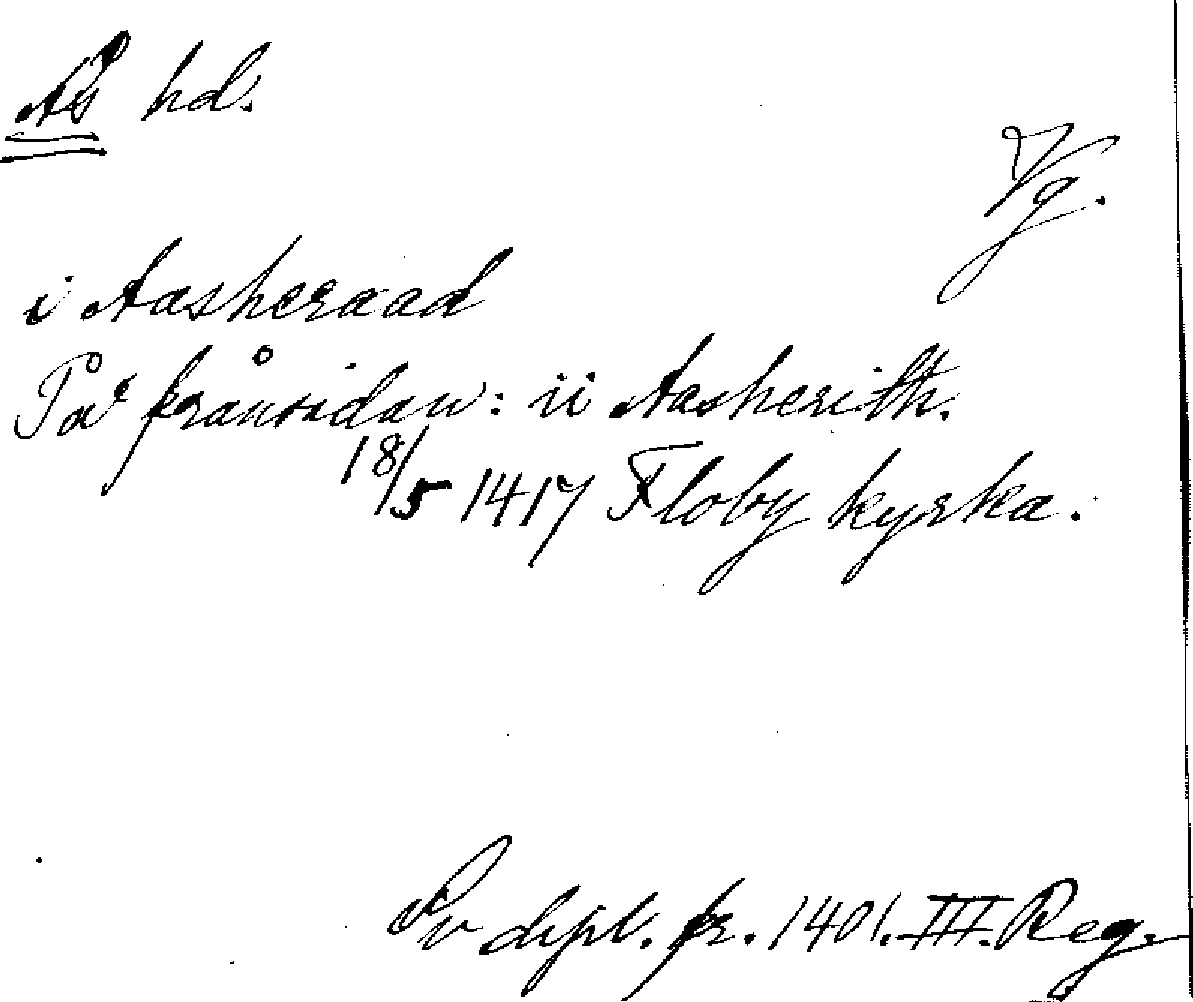 Ås hd.
Vg.
i Aasheraad
På frånsidan: ii Aasherith.
18/5 1417 Floby kyrka.
Sv dipl. fr. 1401. III. Reg.